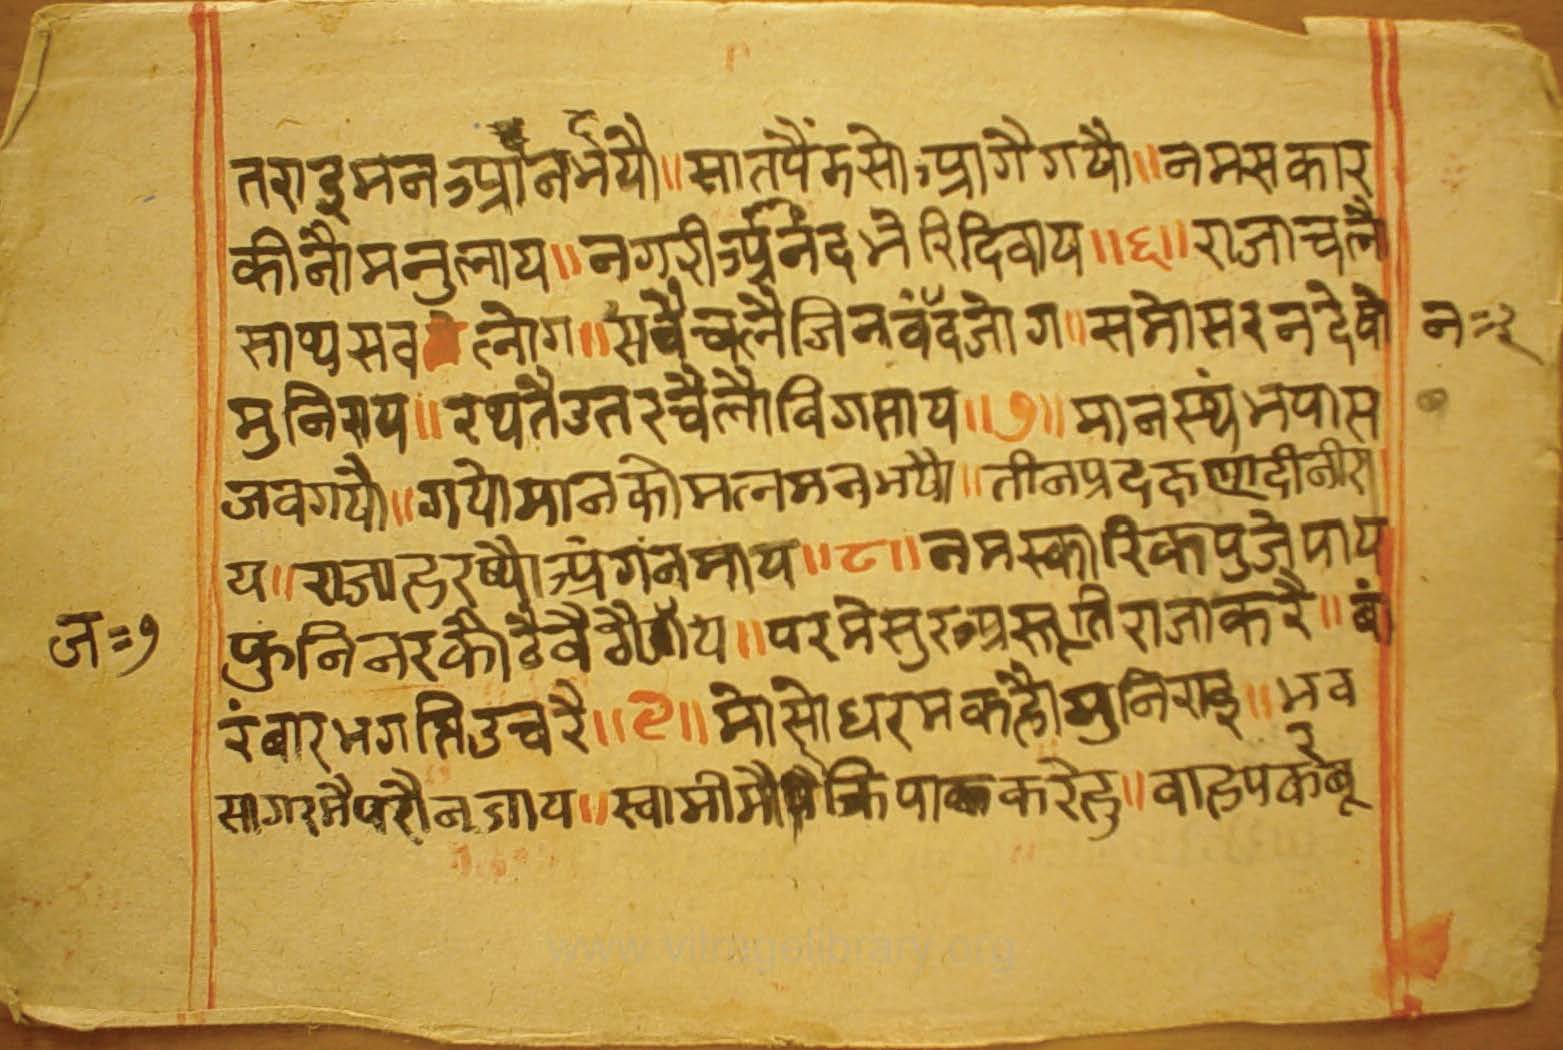 तराइमनअानर्भयौ॥सातपैंमसोअागैगयौ॥नमसकार
कीनौमनुलाय॥नगरीअानंदभेरिदिवाय॥६॥राजाचलै
साथसवलोग॥सवैचलैजिनवंदजोग॥समोसरनदेषो न=२
मुनिराय॥रथतैउतरचैलौविगसाय॥७॥मानस्थंभपास
जवगयौ॥गयोमानकोमलमनभयौ॥तीनप्रददाक्षणादीनीरा
य॥राजाहरष्यौअंगनमाय॥८॥नमस्कारिकपुजेपाय
ज=१ फुनिनरकौठैवैठौय॥परमेसुरअस्तूतिराजाकरै॥बां
रंबारभगत्तिउच्चरै॥९॥मोसोधरमकहौमुनिराइ॥भव
सागरमैपरौनजाय॥स्वामीमौक्रिपाकरेहु॥वाहपकरबू
www.vitragelibrary.org